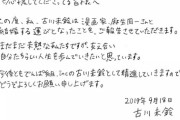 この度、私、古川未鈴は漫画家、麻生周一さんと
結婚する運びとなったことを、ご報告させていただきます。
まだまだ未熟な私たちですが、支え合い
自分たちらしい人生を歩んでいきたいと思っています。
今後もでんぱ組.incの古川未鈴として精進していきますので
どうぞよろしくお願い申し上げます。
2019年9月18日
古川未鈴